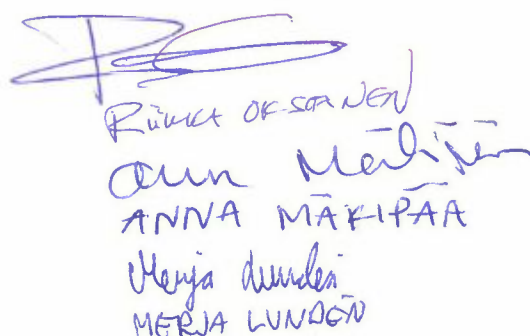 Riikka OKSANEN
Anna Mäkipää
ANNA MÄKIPÄÄ
Merja Lundén
MERJA LUNDÉN